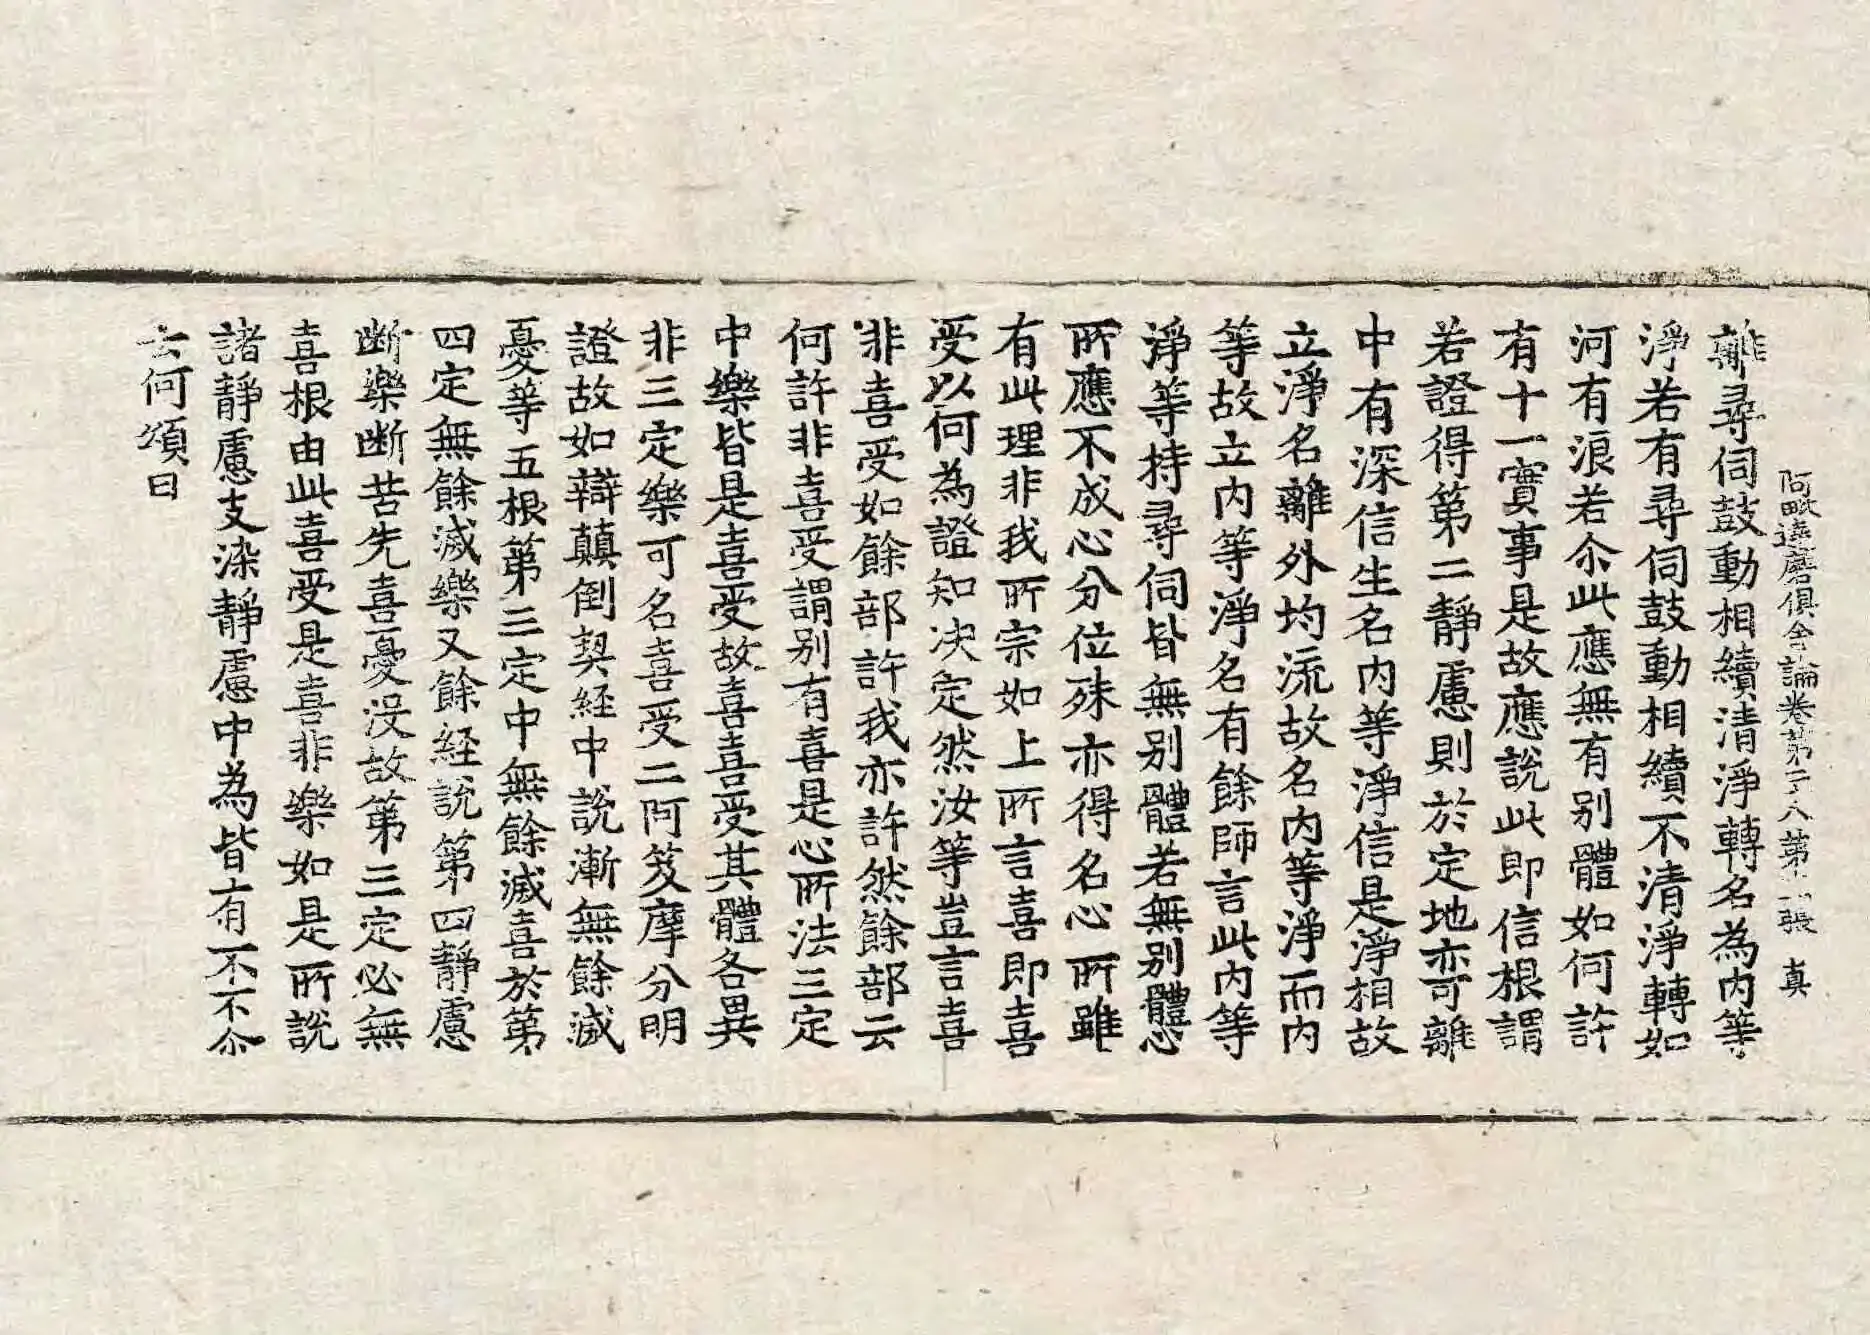 阿毗達磨俱舍論卷第二十八第十一張 真
離尋伺鼓動相續清淨轉名為內等
淨若有尋伺鼓動相續不清淨轉如
河有浪若尒此應無有別體如何許
有十一實事是故應說此即信根謂
若證得第二靜慮則於定地亦可離
中有深信生名內等淨信是淨相故
立淨名離外均流故名內等淨而內
等故立內等淨名有餘師言此內等
淨等持尋伺皆無別體若無別體心
所應不成心分位殊亦得名心所雖
有此理非我所宗如上所言喜即喜
受以何為證知決定然汝等豈言喜
非喜受如餘部許我亦許然餘部云
何許非喜受謂別有喜是心所法三定
中樂皆是喜受故喜喜受其體各異
非三定樂可名喜受二阿笈摩分明
證故如辯顛倒契経中說漸無餘滅
憂等五根第三定中無餘滅喜於第
四定無餘滅樂又餘経說第四靜慮
断樂断苦先喜憂沒故第三定必無
喜根由此喜受是喜非樂如是所說
諸靜慮支染靜慮中為皆有不不尒
云何頌曰